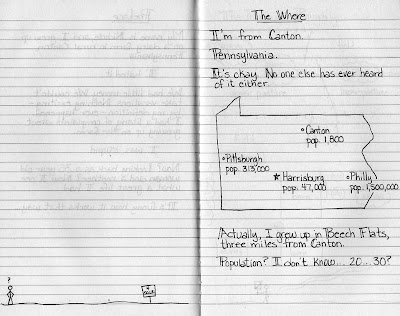 The Where
I'm from Canton.
Pennsylvania.
It's okay. No one else has ever heard
of it either.
Canton
pop. 1,800
Pittsburgh
pop. 313,000
Harrisburg
pop. 47,000
Philly
pop. 1,500,000
Actually, I grew up in Beech Flats,
three miles from Canton.
Population? I don't know... 20... 30?
?